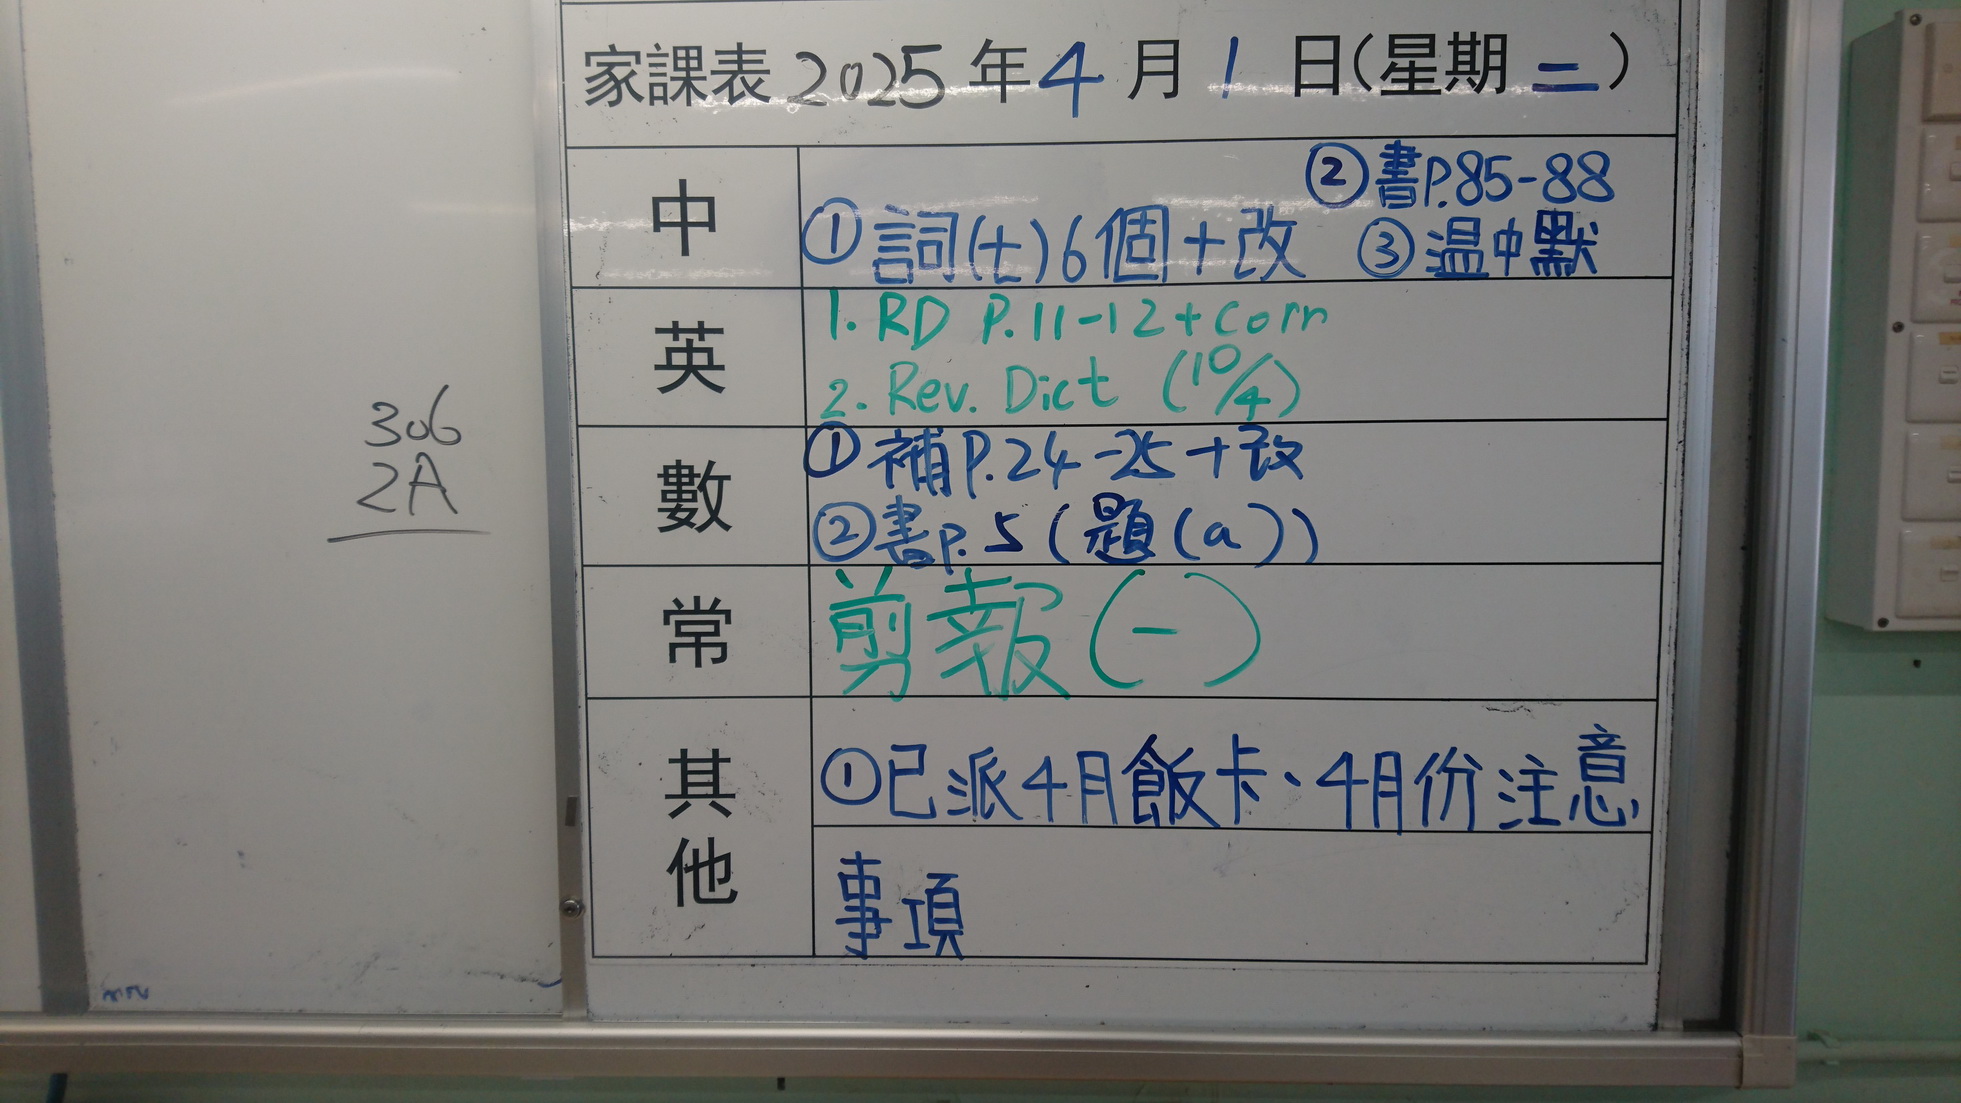 家課表 2025 年 4 月 1 日(星期 二)
中
② 書P.85-88
① 詞(七)6個+改 ③ 温中默
英
1. RD P.11-12+corr
2. Rev. Dict (10/4)
數
① 補P.24-25+改
② 書P.5(題(a))
常
剪報(一)
其他
①已派4月飯卡、4月份注意
事項
306
2A